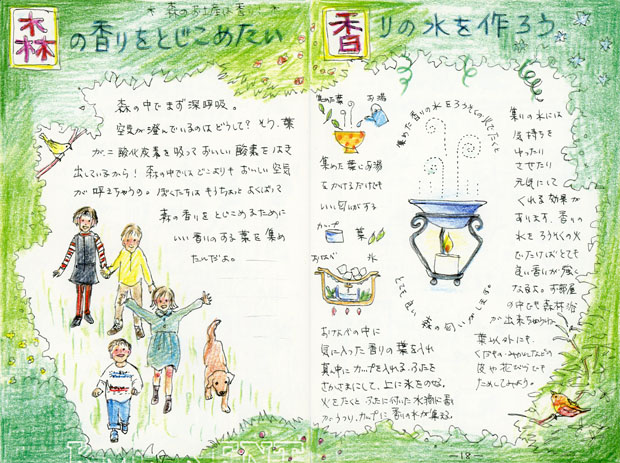 森の香りをとじこめたい
森の中でまず深呼吸。
空気が澄んでいるのはどうして? そう、葉
が二酸化炭素を吸っておいしい酸素をはき
出しているから! 森の中ではどこよりもおいしい空気
ぼくたちはもうちょっとよくばって
森の香りをとじこめるために
いい香りのする葉を集め
たんだよ。
香りの水を作ろう
集めた葉 お湯
集めた葉にお湯
をかけるだけでも
いい匂いがする
カップ 葉
おなべ 氷
おなべの中に
気に入った香りの葉を入れ
真中にカップを入れる。ふたを
さかさまにして、上に氷をのせ、
火をたくと ふたに付いた水滴に香
がうつり、カップに香りの水が集る。
集めた香りの水をろうそくの火でたくと
とても良い 森の匂いがします。
香りの水には
気持ちを
ゆったり
させたり
元気にして
くれる効果が
あります。香りの
水をろうそくの火
でたけばとても
良い香りが強く
なるよ。お部屋
の中でも森林浴
が出来ちゃうわけ
葉以外にも、
くだもの みかんなどの
皮や花びらでも
ためしてみよう。
-18-